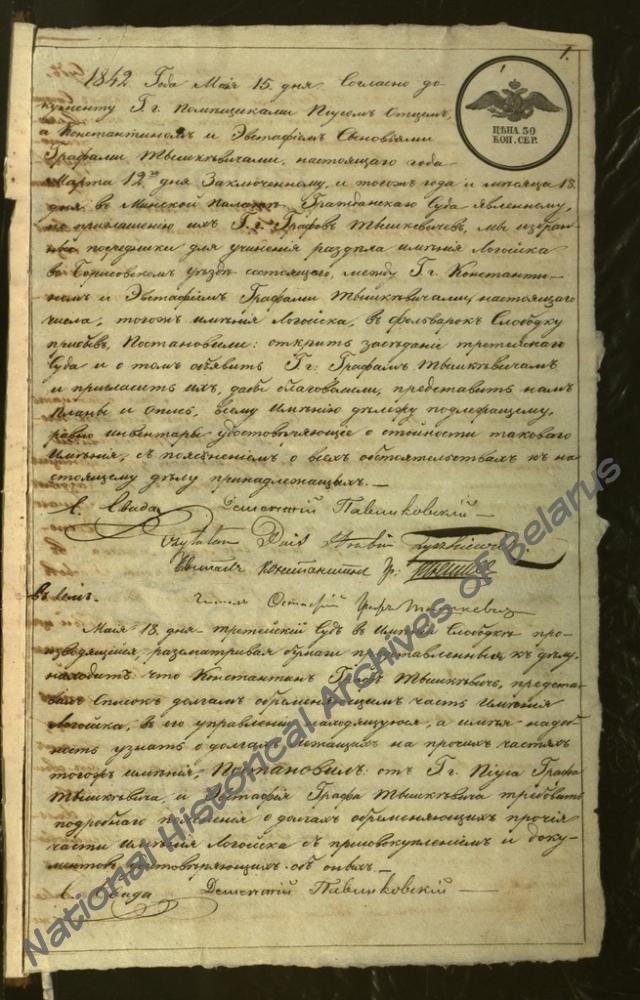 1.
1842 Года Мая 15 дня Согласно до-
кументу Г г. Помѣщиками Піусомъ Отцемъ,
а Константиномъ и Эвстафіемъ Сыновьями
Графами Тышкѣвичами, настоящаго года
Марта 12го дня Заключенному, и тогожъ года и мѣсяца 13
дня въ Минской Палатѣ Гражданскаго Суда явленному,
по приглашенію ихъ Г г. Графовъ Тышкевичевъ, мы избран-
посредники для учиненія раздѣла имѣнія Логойска
въ Борисовскомъ уѣздѣ состоящаго, между Г г. Константи-
номъ и Эвстафіемъ Графами Тышкѣвичами, настоящаго
числа, тогожъ имѣнія Логойска, въ фольваркъ Слободку
прибывъ, Постановили: открыть засѣданіе третейскаго
Суда и о томъ объявить Г г: Графамъ Тышкѣвичамъ
и пригласить ихъ, дабы благоволили, представить намъ
Планы и Опись, всему Имѣнію дѣлежу подлежащему,
равно инвентарь удостовѣряющее о стойности таковаго
Имѣнія, съ поясненіемъ о всѣхъ обстоятельствахъ къ на-
стоящему дѣлу принадлежащихъ.—
Дементій Павликовскій —
Czytałem Pius Hrabia
Читалъ Константинъ Гр:
Читалъ Остафій Графъ Тышкевичъ
Мая 18 дня третейскій Судъ въ Имѣніи Слободкѣ про-
изводящійся, разсматривая бумаги представленныя къ дѣлу,
находитъ что Константинъ Графъ Тышкѣвичъ, предста-
Списокъ долгамъ обременяющимъ часть Имѣнія
Логойска, въ его управленіи находящуюся, а имѣя надоб-
ность узнать о долгахъ лежащихъ на прочихъ частяхъ
тогожъ имѣнія, Постановилъ: отъ Г г. Піуса Графа
Тышкѣвича, и Эвстафія Графа Тышкѣвича требовать
подробнаго о долгахъ обременяющихъ прочія
части имѣнія Логойска съ присовокупленіемъ и доку-
ментовъ удостовѣряющихъ объ оныхъ.—
Дементій Павликовскій —
ЦѢНА 30
КОП. СЕР.
National Historical Archives of Belarus